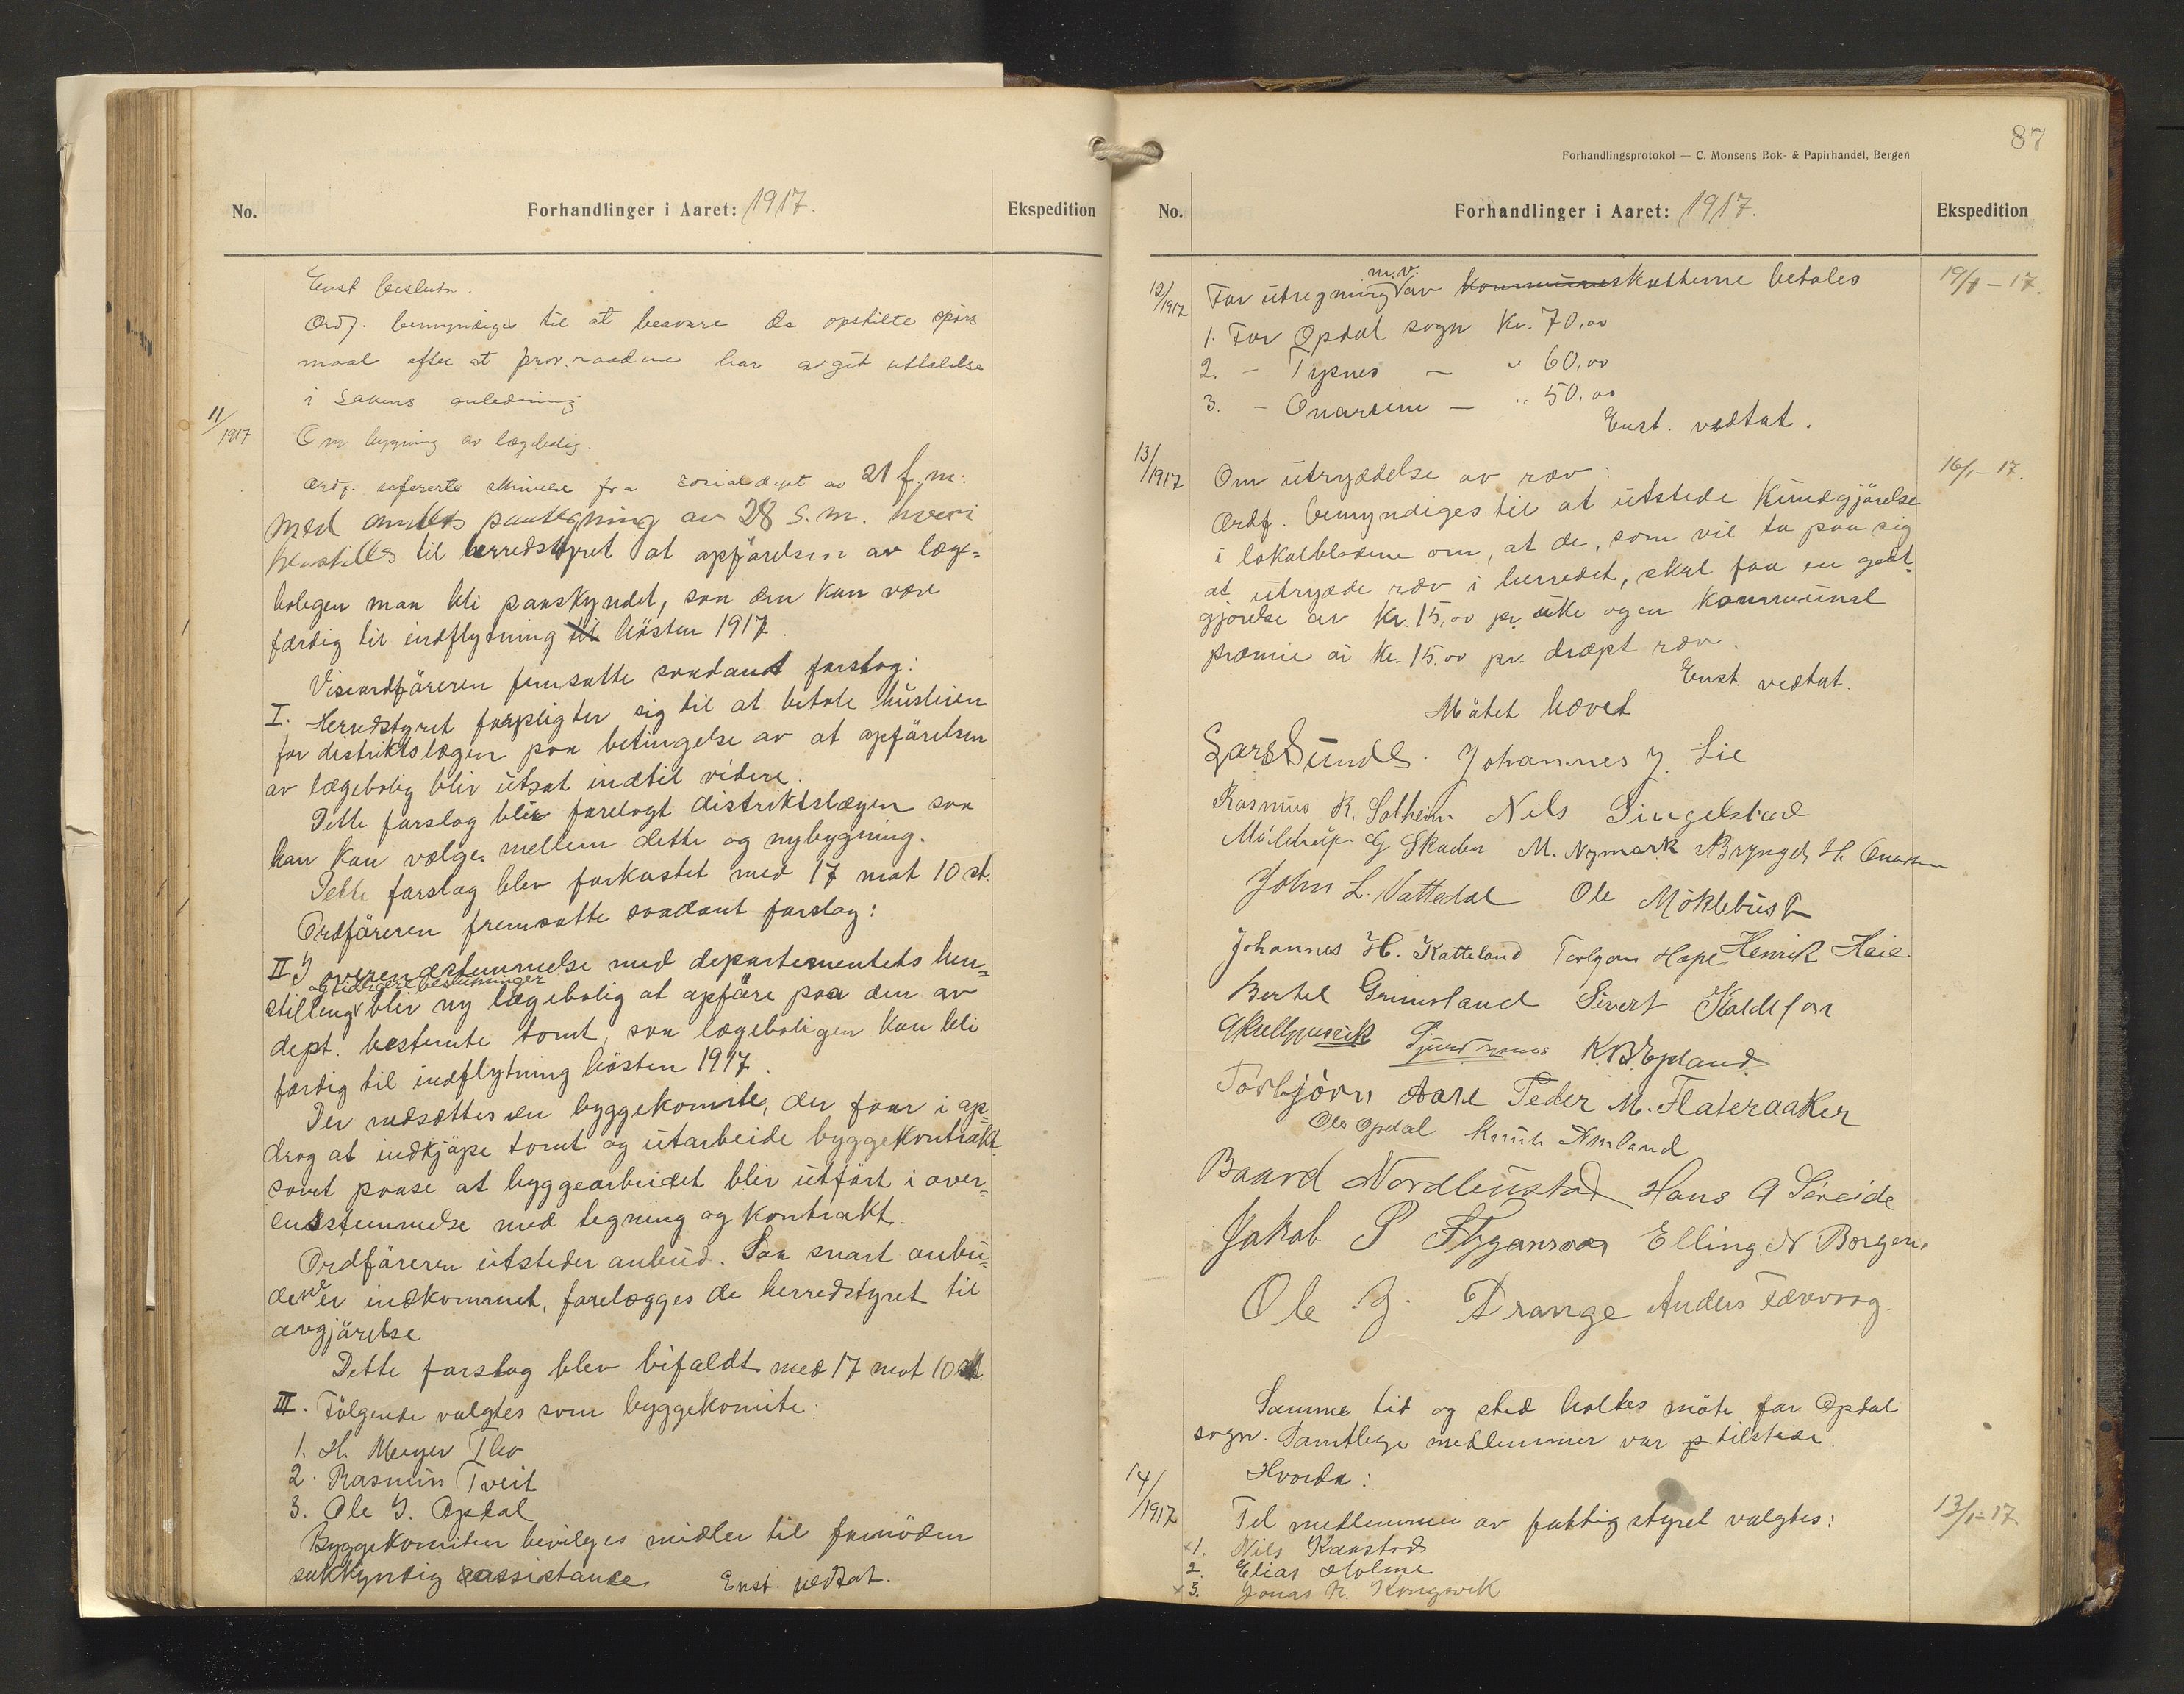 No.
Forhandlinger i Aaret: 1917.
Ekspedition
Enst beslutn.
Ordf. bemyndiges til at besvare de opstilte spørs
maal efter at prov.raadene har avgit uttalelse
i sakens anledning
11/1917
Om bygning av lægebolig.
Ordf. refererte skrivelse fra socialdept av 21 f.m.
med amtets paategning av 28 s.m. hvori
henstilles til herredstyret at opførelsen av læge-
boligen maa bli paaskyndet, saa den kan være
færdig til indflytning til høsten 1917.
Viseordføreren fremsatte saadant forslag:
I. Herredstyret forpligter sig til at betale husleien
for distriktslægen paa betingelse av at opførelsen
av lægebolig blir utsat indtil videre.
Dette forslag blir forelagt distriktslægen saa
han kan vælge mellem dette og nybygning.
Dette forslag blev forkastet med 17 mot 10 st.
Ordføreren fremsatte saadant forslag:
II I overensstemmelse med departementets hen-
og tidligere beslutninger
stilling blir ny lægebolig at opføre paa den av
dept. bestemte tomt, saa lægeboligen kan bli
færdig til indflytning høsten 1917.
Der nedsættes en byggekomite, der faar i op-
drag at indkjøpe tomt og utarbeide byggekontrakt
samt paase at byggearbeidet blir utført i over-
ensstemmelse med tegning og kontrakt.
Ordføreren utsteder anbud. Saa snart anbu-
dene er indkommet, forelægges de herredstyret til
avgjørelse
Dette forslag blev bifaldt med 17 mot 10 st.
III. Følgende valgtes som byggekomite:
1. H. Meyer Thv
2. Rasmus Tveit
3. Ole J. Opdal
Byggekomiten bevilges midler til fornøden
sakkyndig assistance. Enst. vedtat.
87
Forhandlingsprotokol — C. Monsens Bok- & Papirhandel, Bergen
No.
Forhandlinger i Aaret: 1917.
Ekspedition
12/1917
m.v.
For utregning av kommuneskatterne betales
19/1-17.
1. For Opdal sogn Kr. 70,00
2. - Tysnes - " 60,00
3. - Onarheim - " 50,00
Enst. vedtat.
13/1917
Om utryddelse av ræv:
16/1-17.
Ordf. bemyndiges til at utstede kundgjørelse
i lokalbladene om, at de, som vil ta paa sig
at utrydde ræv i herredet, skal faa en godt-
gjørelse av Kr. 15,00 pr. uke og en kommunal
præmie av Kr. 15.00 pr. dræpt ræv.
Enst. vedtat.
Møtet hævet
Lars Sunde. Johannes J. Lie
Rasmus K. Solheim Nils Singelstad
G Skaden M. Nymark Brynjel H. Onarheim
John L. Vattedal Ole Møklebust
Johannes H. Katteland Torbjørn Hope Henrik Heie
Bertel Grimsland Sivert Kaldefoss
K. B. Epland.
Torbjørn Aase Peder M. Flateraaker
Ole Opdal Knut
Baard Nordhustad Hans A Søreide
Jakob P Elling N Borgen.
Ole J. Drange Anders Færevaag.
Samme tid og sted holtes møte for Opdal
sogn. Samtlige medlemmer var tilstede.
Hvorda:
14/1917
Til medlemmer av fattigstyret valgtes:
13/1-17
x1. Nils Kaastad
2. Elias Holme
x3. Jonas N. Kongsvik